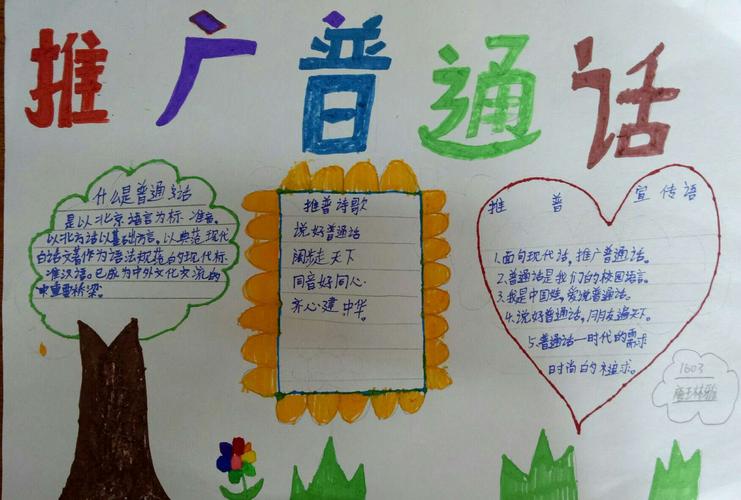 推广普通话
什么是普通话
是以北京语言为标准音。
以北方话以基础方言。以典范现代
白话文著作为语法规范的现代标
准汉语。已成为中外文化交流的
重要桥梁。
推普诗歌
说好普通话
阔步走天下
同音好同心
齐心建中华。
推普宣传语
1.面向现代话,推广普通话。
2.普通话是我们的校园语言。
3.我是中国娃,爱说普通话。
4.说好普通话,朋友遍天下。
5.普通话一时代的需求
时尚的追求。
1603